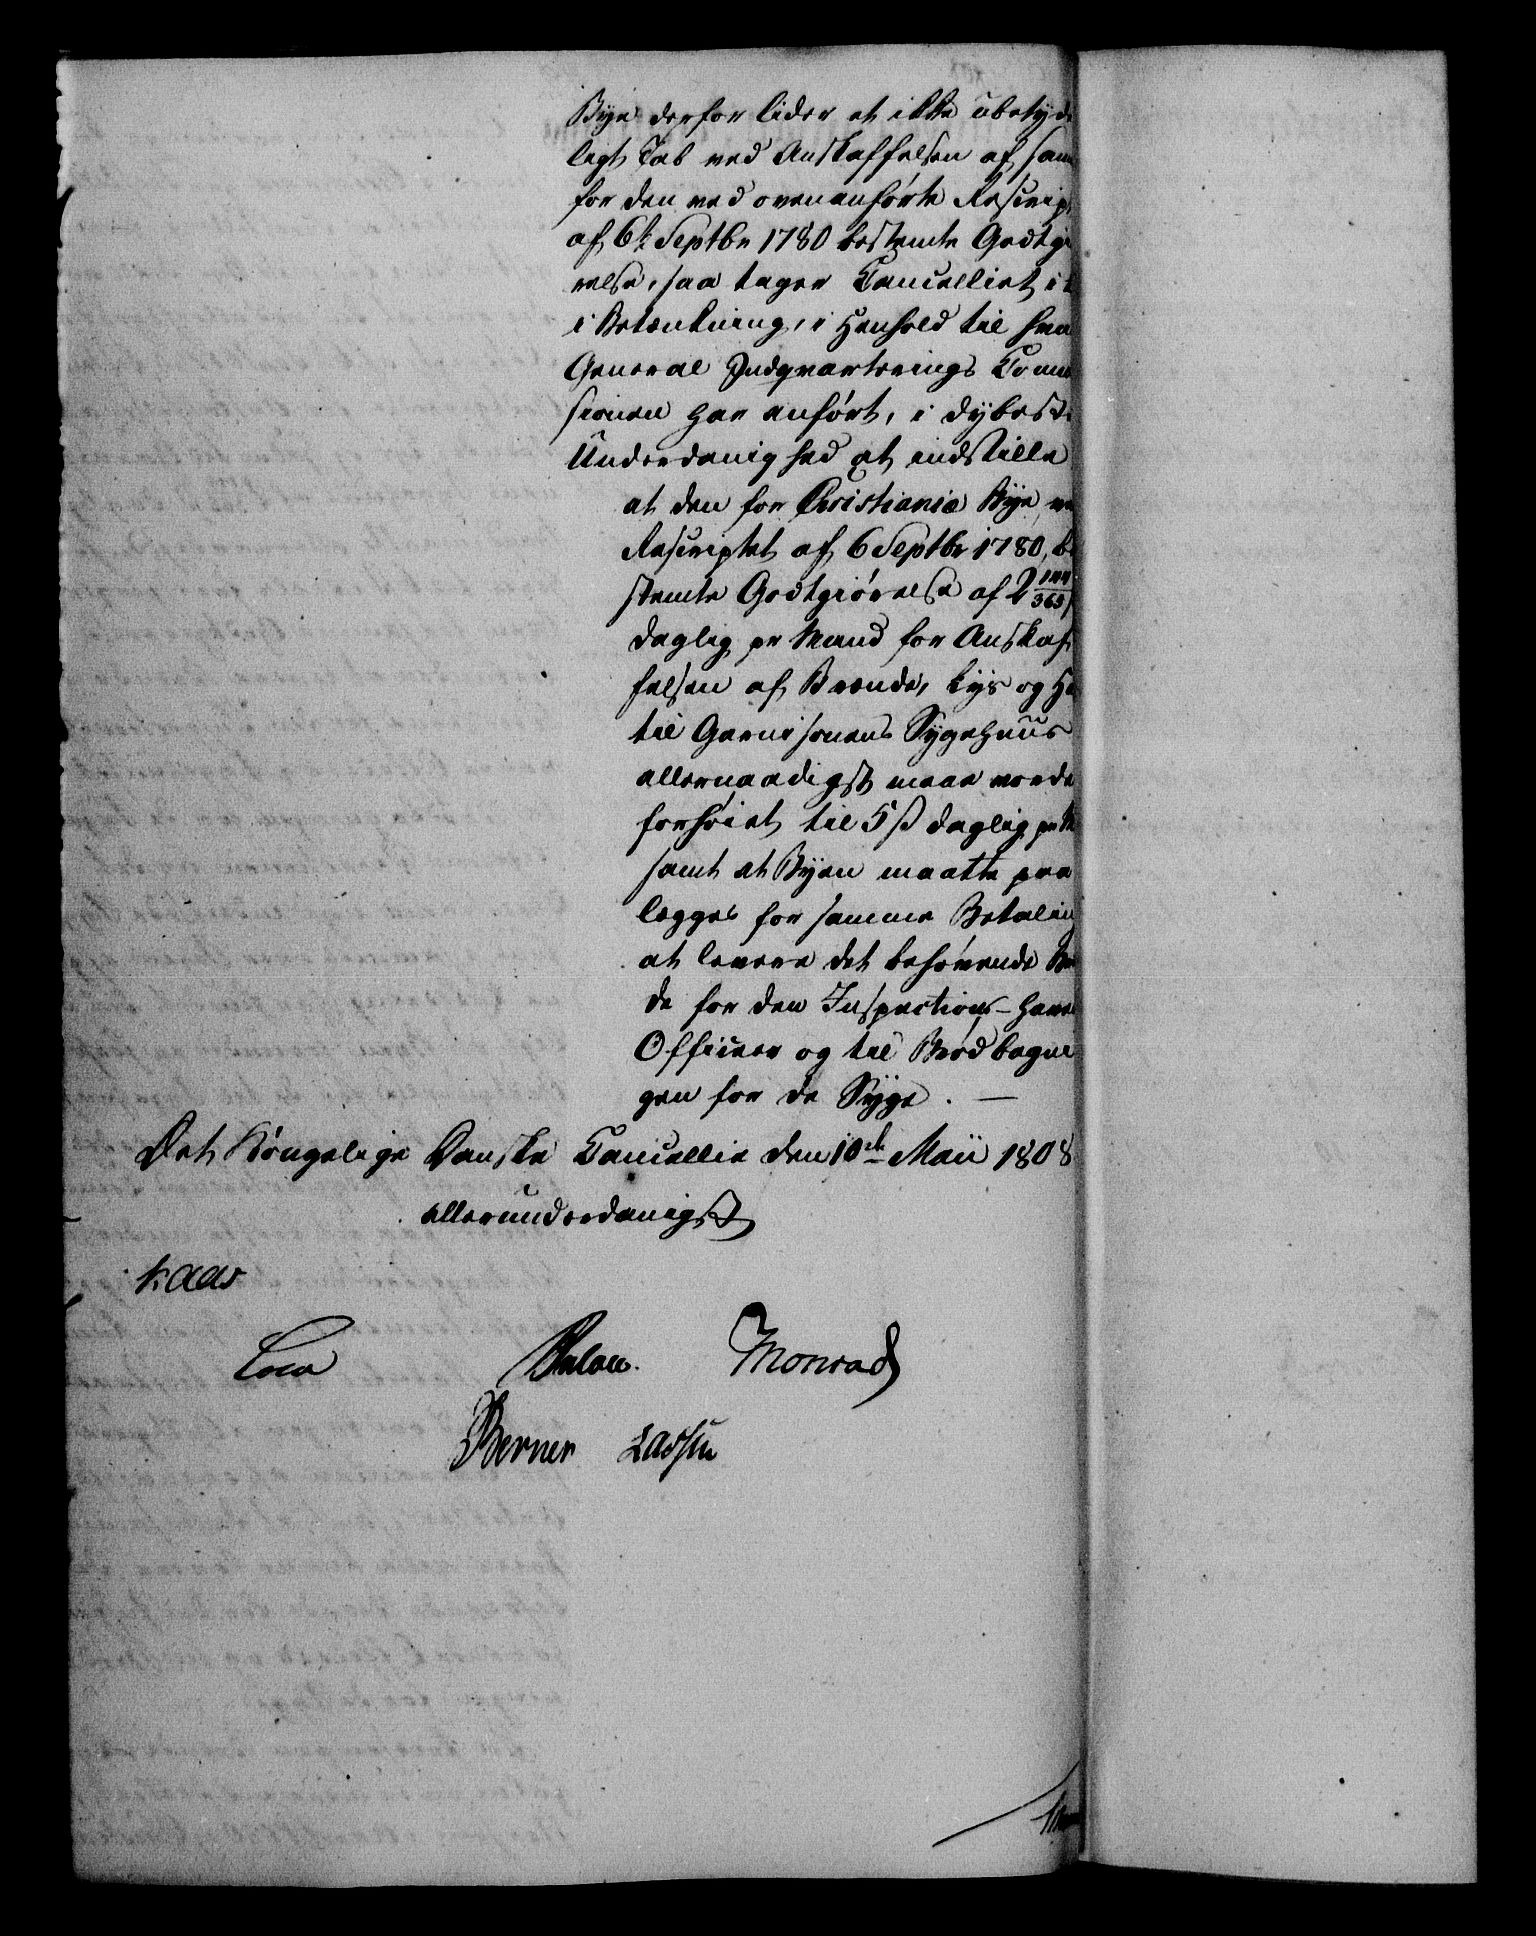 Bye derfor lider et ikke ubetyde
ligt Tab ved Anskaffelsen af sam
for den ved ovenanførte Rescrip
af 6te Septbr 1780 bestemte Godtgi
relse, saa tager Cancelliet i
i Betænkning, i Henhold til hva
General Indqvarterings Comm
sionen har anført, i dybeste
Underdanighed at indstille
at den for Christiania Bye, ve
Rescriptet af 6 Septbr 1780, be
stemte Godtgiørelse af 2 144/365 ß
daglig pr Mand for Anskaf
felsen af Brænde, Lys og Ha
til Garnisonens Sygehuus
allernaadigst maae vorde
forhøiet til 5 ß daglig pr M
samt at Byen maatte paa
lægges for samme Betaling
at levere det behøvende Bræ
de for den Inspections-have
Officeer og til Brødbagnin
gen for de Syge. —
Det Kongelige Danske Cancellie den 10de Maii 1808
allerunderdanigst
Kaas
Cold Bülow. Monrad
Berner Lassen